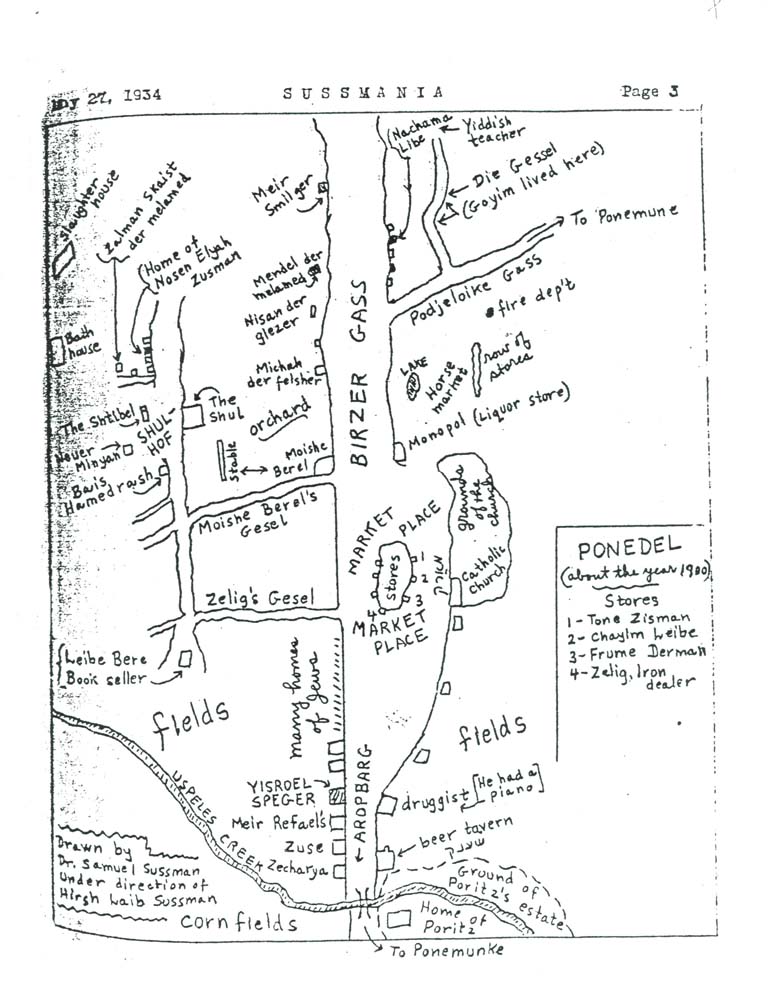 May 27, 1934 SUSSMANIA Page 3
Nachama
Libe
Yiddish
teacher
Die Gessel
(Goyim lived here)
To Ponemune
Podjeloike Gass
fire dep't
row of
stores
LAKE
Horse
market
Monopol (Liquor store)
Slaughter
house
Zalman Skaist
der melamed
Home of
Nosen Elyah
Zusman
Bath
house
Meir
Smilger
Mendel der
melamed
Nisan der
glezer
Michah
der felsher
BIRZER GASS
The Shtibel
Nouer
Minyan
Bais
Hamedrash
SHUL-
HOF
The
Shul
orchard
Stable
Moishe
Berel
Moishe Berel's
Gesel
Zelig's Gesel
MARKET PLACE
stores
1
2
3
4
MARKET
PLACE
grounds
of the
church
Catholic
church
PONEDEL
(about the year 1900)
Stores
1- Tone Zisman
2- Chayim Leibe
3- Frume Derman
4- Zelig, Iron
dealer
Leibe Bere
Book seller
fields
many homes
of Jews
fields
YISROEL
SPEGER
Meir Refael's
Zuse
Zecharya
AROPBARG
druggist [He had a
piano]
beer tavern
שענק
USPELES CREEK
Ground of
Poritz's estate
Home of
Poritz
Drawn by
Dr. Samuel Sussman
Under direction of
Hirsh Laib Sussman
Corn fields
To Ponemunke